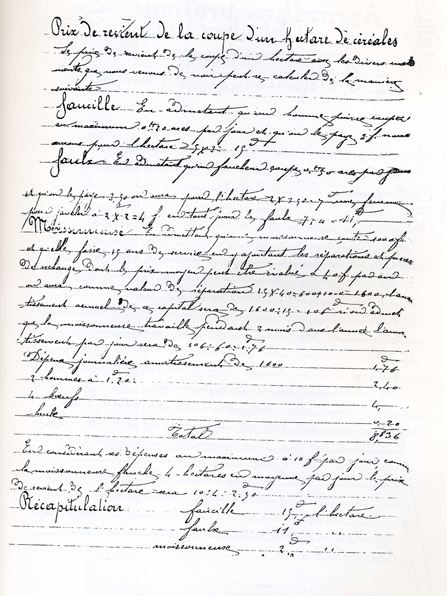 Prix de revient de la coupe d'un hectare de céréales
Le prix de revient de la coupe d'un hectare avec les divers
que nous venons de voir peut se calculer de la manière
suivante
faucille En admettant qu'un homme puisse couper
au maximum 0h 20 ares par jour et qu'on le paye 3 f. nous
aurons pour l'hectare 5 x 3 = 15 f
faulx En admettant qu'un faucheur coupe 0h 50 ares par jour
et qu'on le paye 3,50 on aura pour l'hectare 2 x 3,50 = 7 une femme
pour javeler à 2 x 2 = 4 f en tout pour la faulx 7 + 4 = 11 f
Moissonneuse En admettant qu'une moissonneuse coûte 1000 f
et qu'elle fasse 15 ans de service en y ajoutant les réparations et pièces
de rechange dont le prix moyen peut être évalué à 40 f par an
on aura comme valeur de réparation 15 x 40 = 600 + 1000 = 1600 l'amor
tissement annuel de ce capital sera de 1600 : 15 = 106 f si on admet
que la moissonneuse travaille pendant 2 mois dans l'année l'amor
tissement par jour sera de 106 : 60 = 1.76
Dépense journalière amortissement de 1600 1,76
2 hommes à 1.20 2,40
4 bœufs 4,
huile 0.20
Total 8f36
En considérant ses dépenses au maximum à 10 f par jour comme
la moissonneuse fauche 4 hectares en moyenne par jour le prix
de revient de l'hectare sera 10 : 4 = 2.50
Récapitulation faucille 15 f l'hectare
faulx 11, "
moissonneuse 2, "